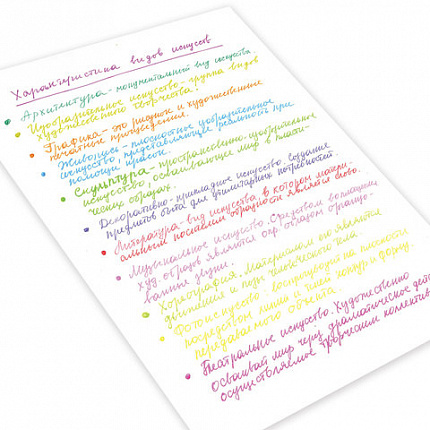 Характеристика видов искусств
Архитектура - монументальный вид искусства
Изобразительное искусство - группа видов
художественного творчества.
Графика - это рисунок и художественные
печатные произведения.
Живопись - плоскостное изобразительное
искусство, представляющее реальность при
помощи красок.
Скульптура - пространственно-изобразительное
искусство, осваивающее мир в пласти-
ческих образах.
Декоративно-прикладное искусство. Создание
предметов быта для утилитарных потребностей.
Литература - вид искусства, в котором матери-
альным носителем образности является слово.
Музыкальное искусство. Средством воплощения
худ. образа является опр. образом организо-
ванные звуки.
Хореография. Материалом его является
движения и позы человеческого тела
Фотоискусство воспроизводит на плоскости
посредством линий и теней контур и форму
передаваемого объекта.
Театральные искусство. Художественно
осваивает мир через драматическое дейс
осуществляемое творческим коллектив